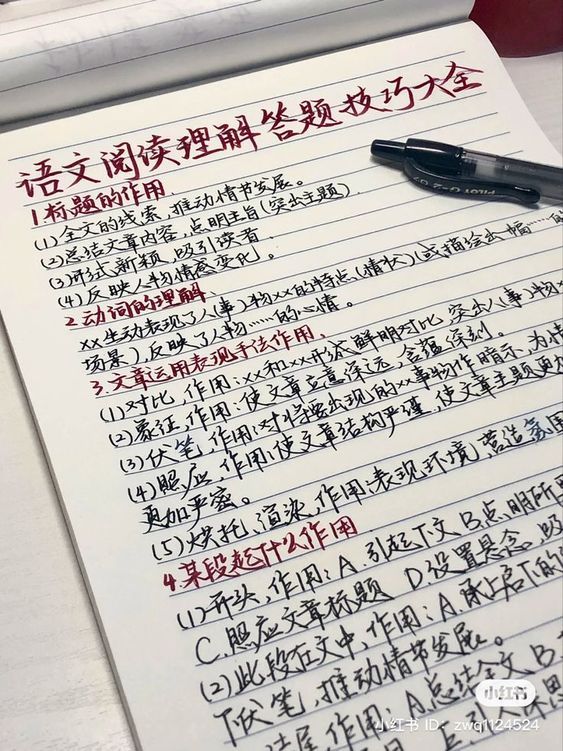 语文阅读理解答题技巧大全
1.标题的作用
(1)全文的线索，推动情节发展。
(2)总结文章内容，点明主旨(突出主题)
(3)形式新颖，吸引读者
(4)反映人物情感变化。
2.动词的理解
xx生动表现了人(事)物xx的特点(情状)(或描绘出一幅……的
场景)，反映了人物……的心情。
3.文章运用表现手法作用.
(1)对比，作用:xx和xx形成鲜明对比，突出人(事)物x
(2)象征，作用:使文章立意深远，含蕴深刻。
(3)伏笔，作用:对将要出现的xx事物作暗示，为情
(4)照应，作用:使文章结构严谨，使文章主题更
更加严密。
(5)烘托，渲染，作用:表现环境，营造氛围
4.某段起什么作用
(1)开头，作用:A.引起下文 B.点明所
C.照应文章标题 D.设置悬念，吸
(2)此段在文中，作用:A.承上启下的
下伏笔，推动情节发展。
结尾，作用:A.总结全文 B.
小红书
小红书 ID: zwq1124524
PILOT